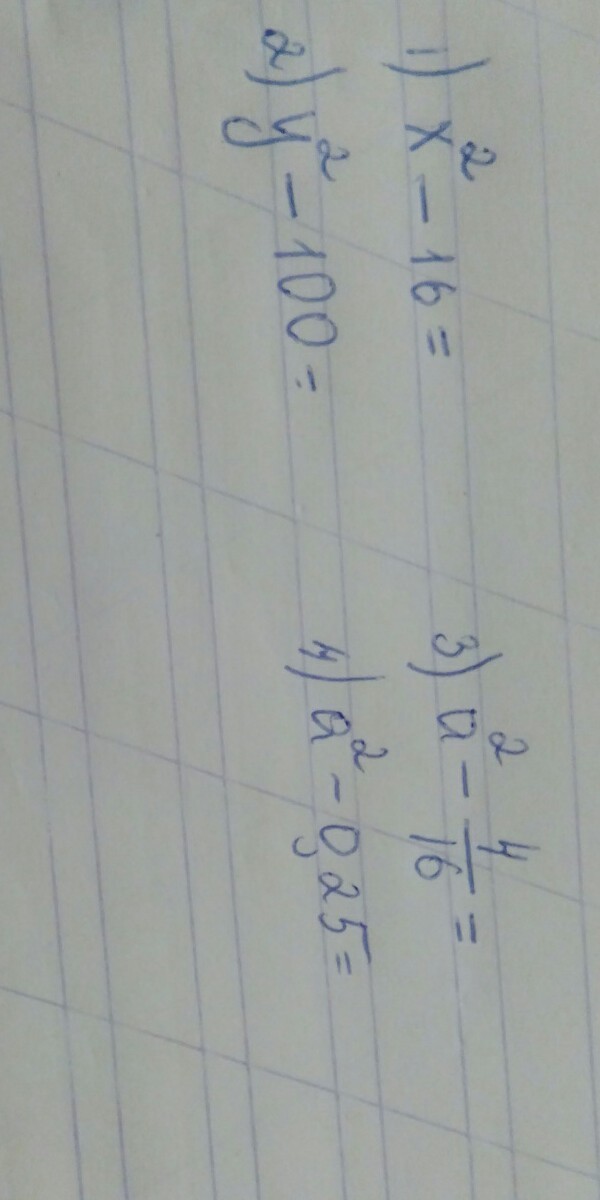 1) x² - 16 =
2) y² - 100 =
3) a² - 4/16 =
4) a² - 0,25 =